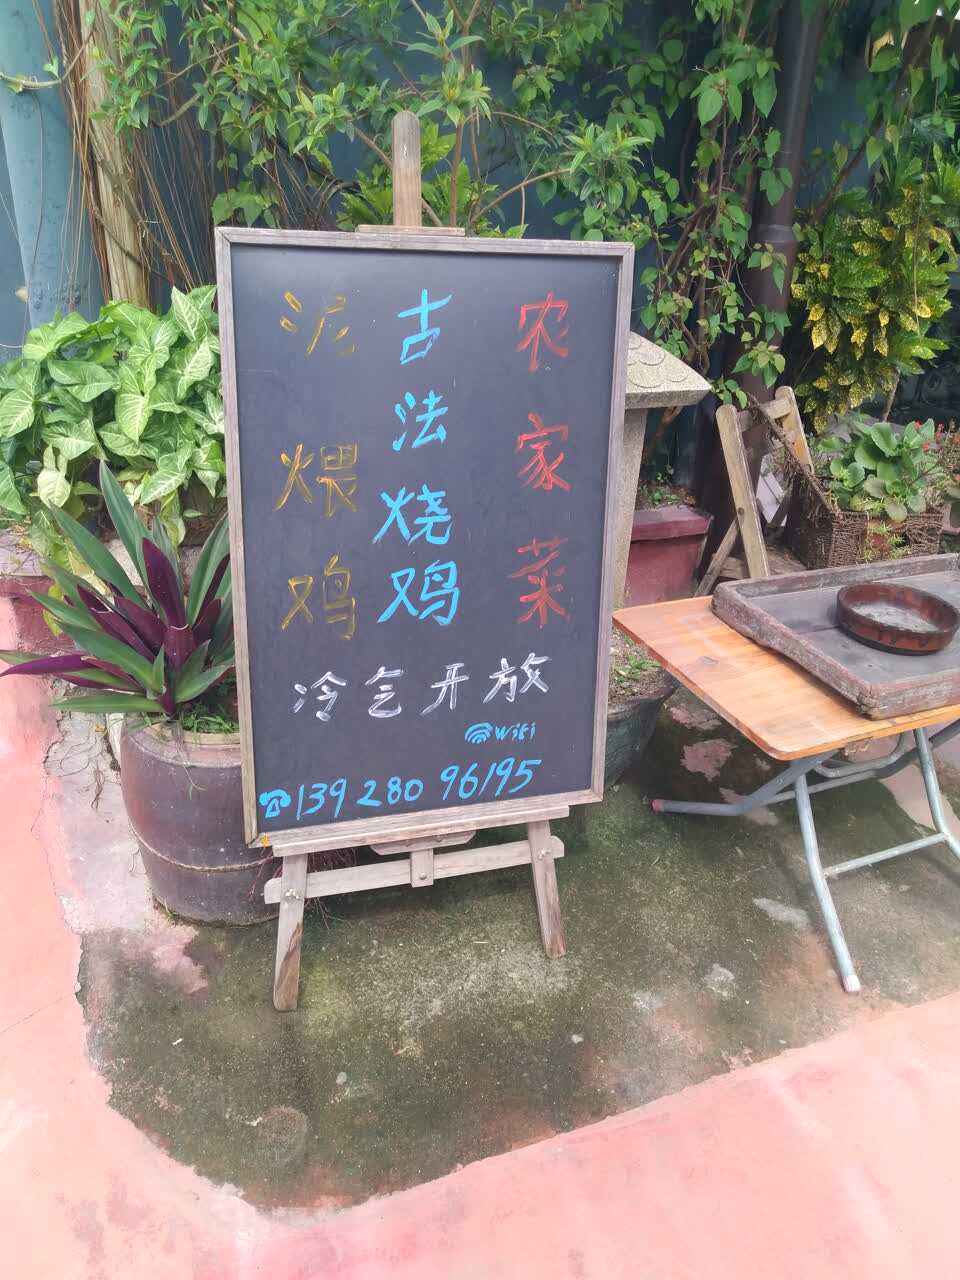 农家菜
古法烧鸡
泥煨鸡
冷气开放
wifi
☎13928096195